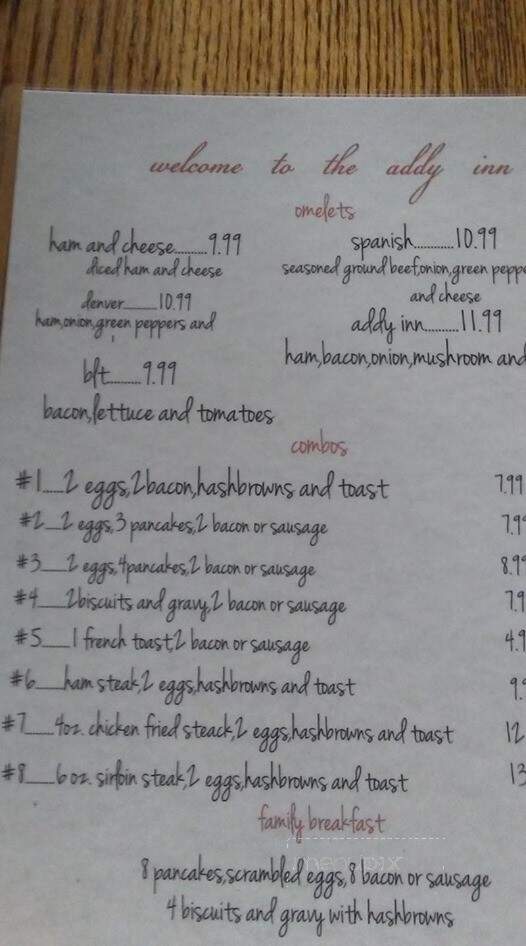 welcome to the addy inn
omelets
ham and cheese.........9.99
diced ham and cheese
denver.........10.99
ham,onion,green peppers and
blt.........9.99
bacon,lettuce and tomatoes
spanish...........10.99
seasoned ground beef,onion,green peppe
and cheese
addy inn.........11.99
ham,bacon,onion,mushroom and
combos
#1___2 eggs,2 bacon,hashbrowns and toast 7.99
#2__2 eggs,3 pancakes,2 bacon or sausage 7.99
#3___2 eggs,4pancakes,2 bacon or sausage 8.99
#4___2biscuits and gravy,2 bacon or sausage 7.9
#5___1 french toast,2 bacon or sausage 4.9
#6___ham steak,2 eggs,hashbrowns and toast 9.
#7___4oz. chicken fried steack,2 eggs,hashbrowns and toast 12
#8__6 oz. sirloin steak,2 eggs,hashbrowns and toast 13
family breakfast
8 pancakes,scrambled eggs,8 bacon or sausage
4 biscuits and gravy with hashbrowns